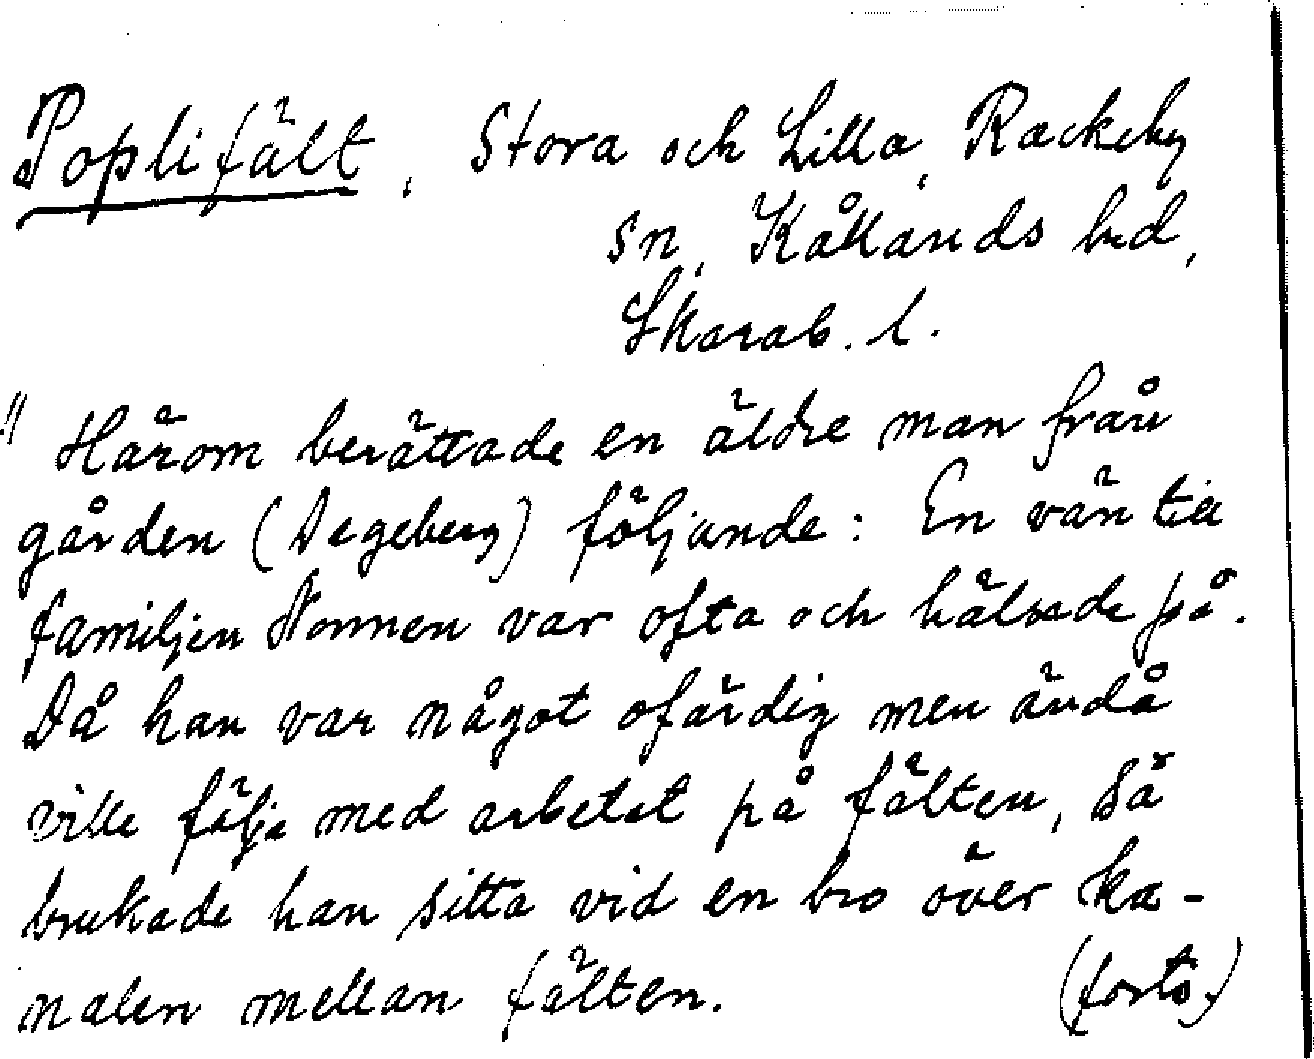 Poplifält, Stora och Lilla, Rackeby
sn, Kållands hd,
Skarab. l.
" Härom berättade en äldre man från
gården (Degeberg) följande: En vän till
familjen Nonnen var ofta och hälsade på.
Då han var något ofärdig men ändå
ville följa med arbetet på fälten, så
brukade han sitta vid en bro över ka-
nalen mellan fälten. (forts.)